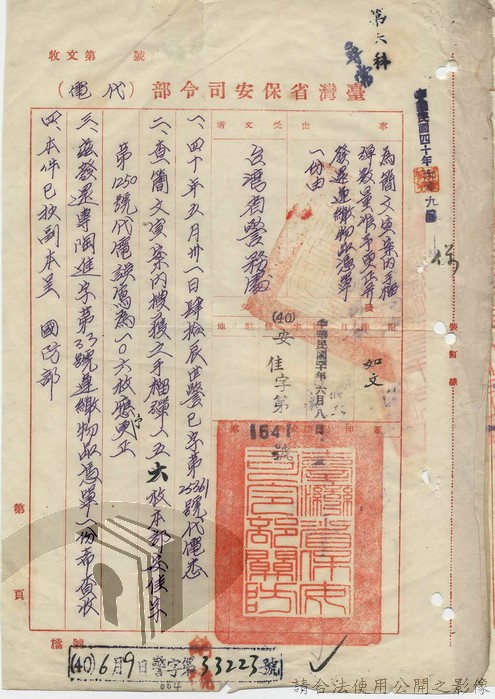 第六科
收文第 號
臺灣省保安司令部(代電)
事由
為簡文寅案內手榴
彈數量准予更正并
發還運繳物品憑單
一份由
受文者
台灣省警務處
如文
中華民國四十年六月八日
(40)安佳字第
1641號
一、四十年五月卅一日肆拾辰世警已字第25361號代電悉
二、查簡文寅案內搜獲之手榴彈一五六枚本部安佳字
第1250號代電誤為一〇六枚應予更正
三、茲發還專陶進字第33號運繳物品憑單一份希查收
四、本件已抄副本呈 國防部
臺灣省保安司令部關防
第 頁
裝訂線
檔號
(40)6月9日警字第33223號
064
請合法使用公開之影像